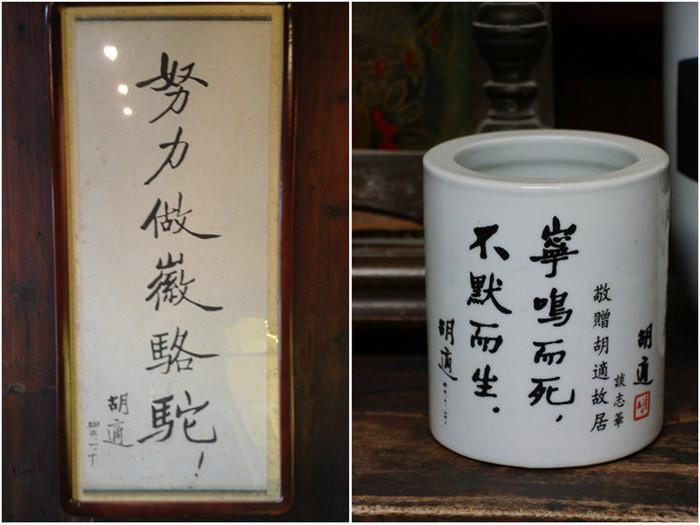 努力做徽駱駝！
胡適
寧鳴而死，
不默而生。
胡適
胡適
敬贈胡適故居
談志華